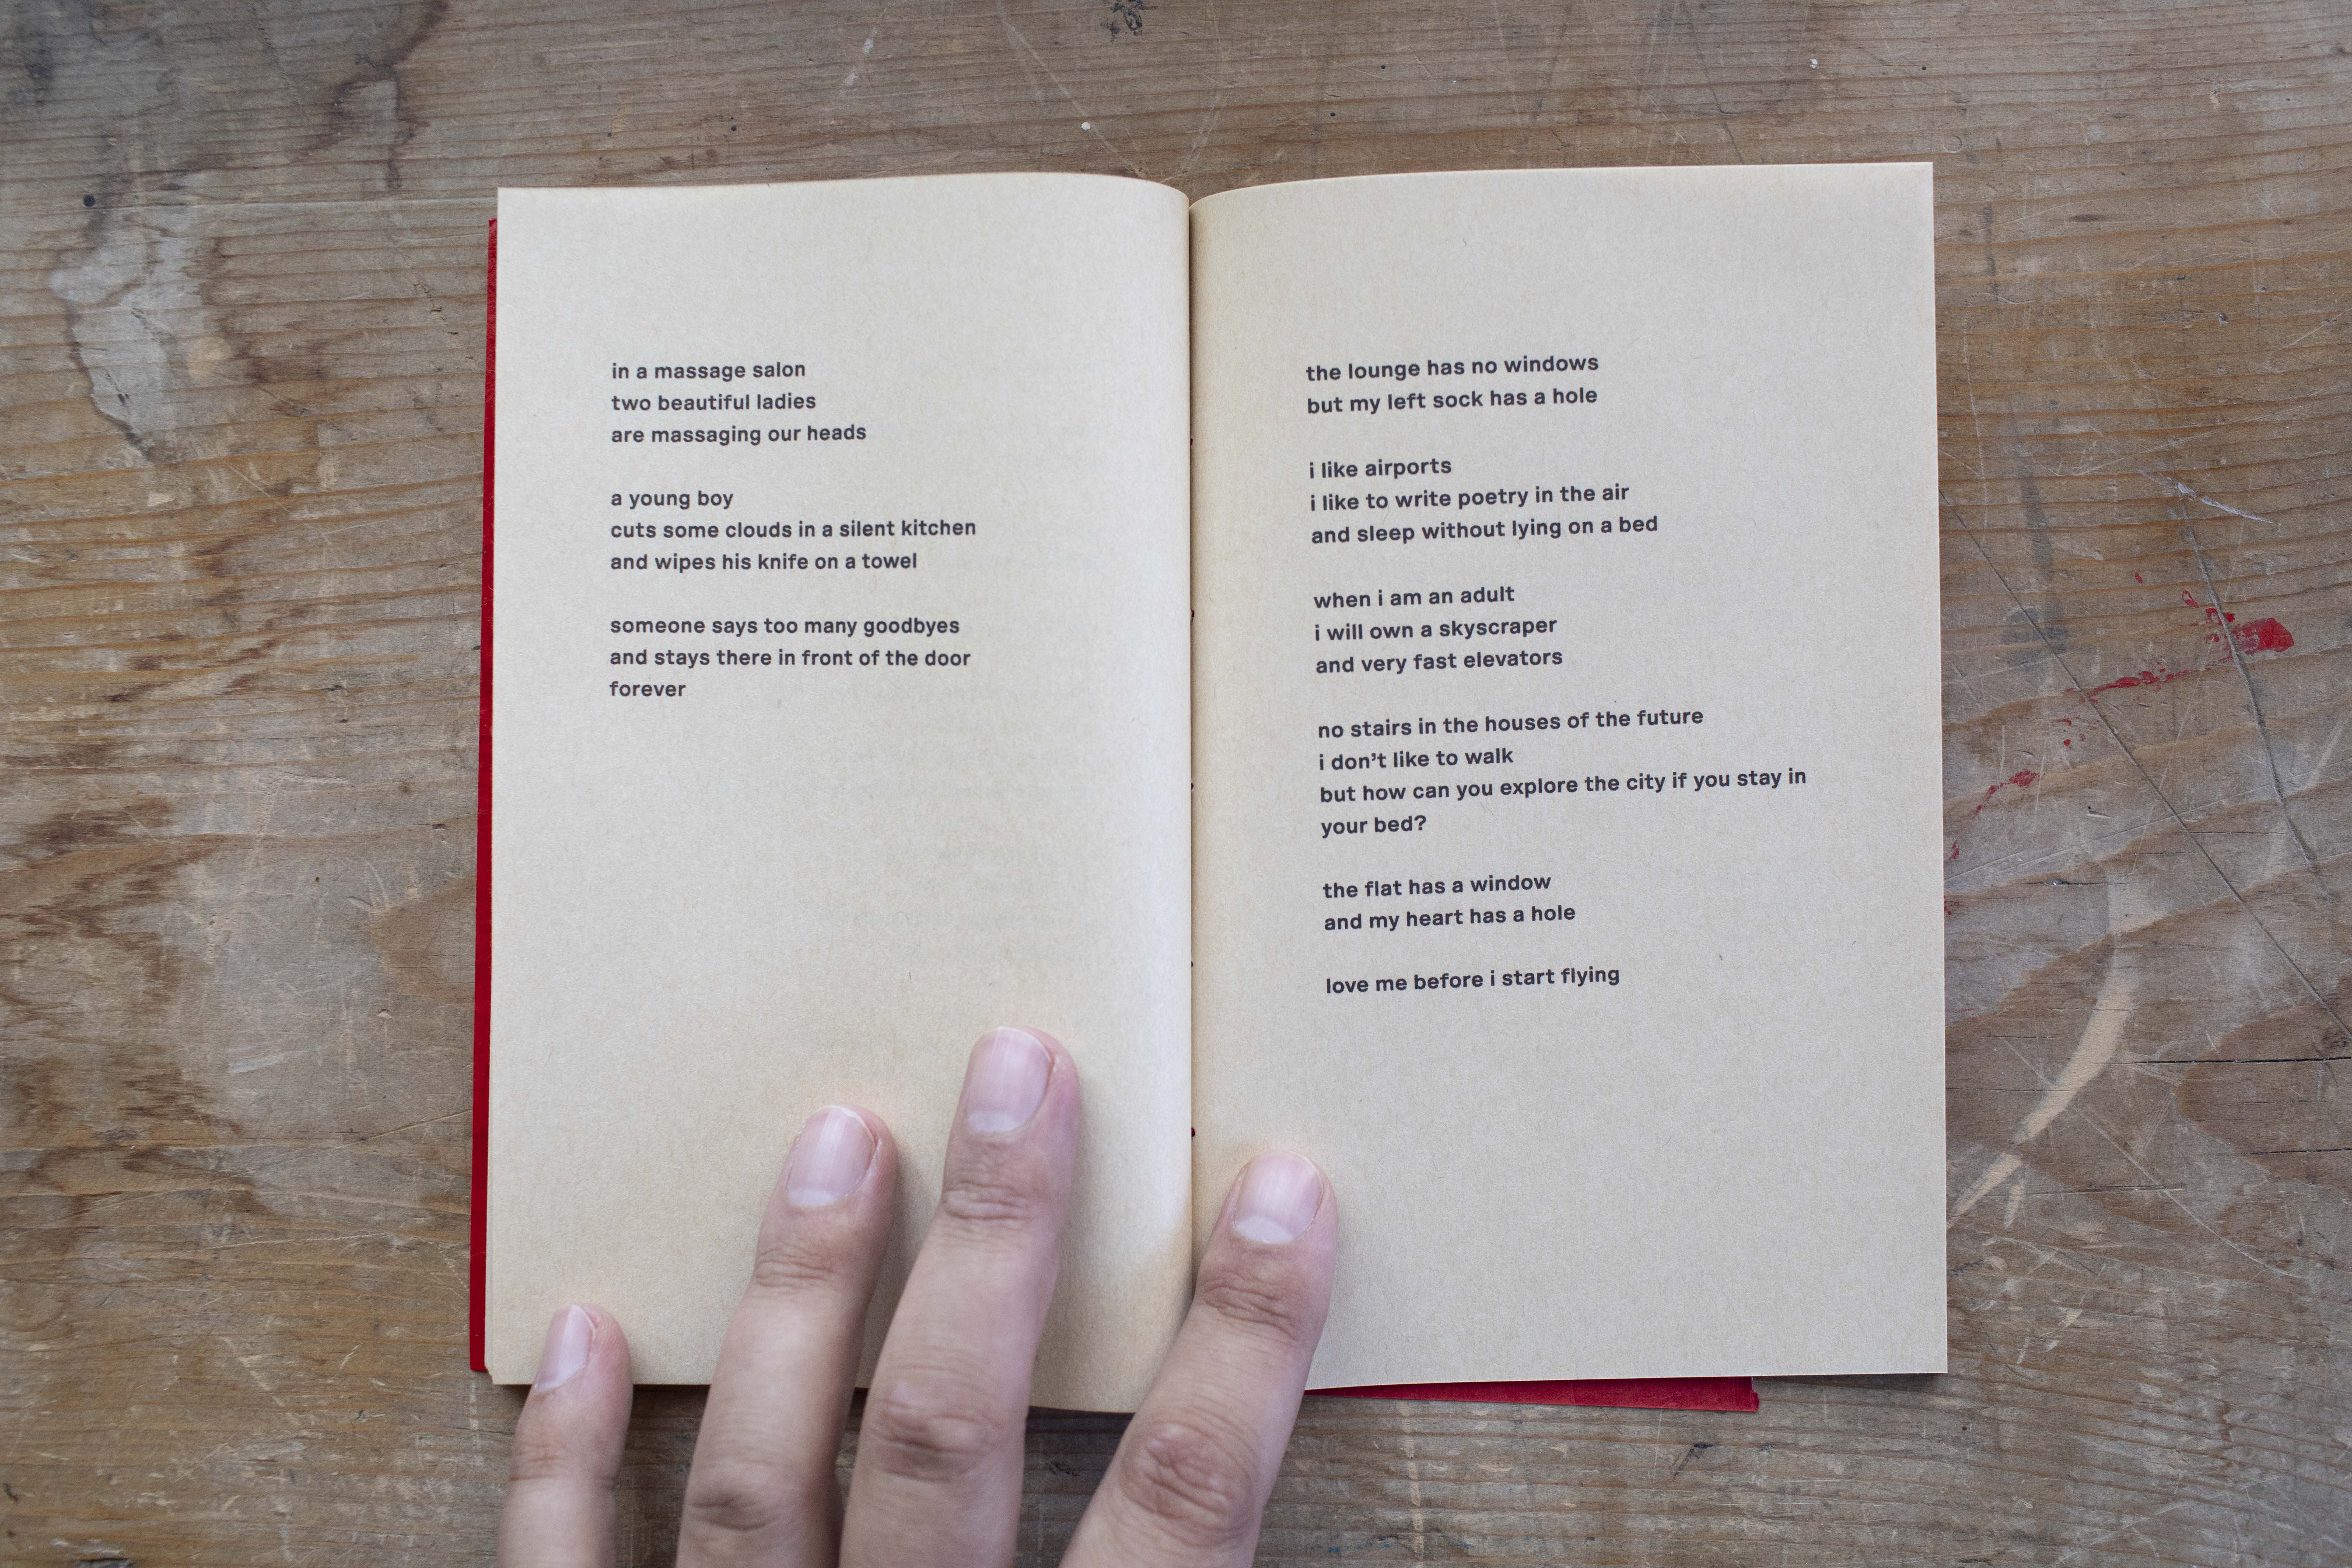 in a massage salon
two beautiful ladies
are massaging our heads
a young boy
cuts some clouds in a silent kitchen
and wipes his knife on a towel
someone says too many goodbyes
and stays there in front of the door
forever
the lounge has no windows
but my left sock has a hole
i like airports
i like to write poetry in the air
and sleep without lying on a bed
when i am an adult
i will own a skyscraper
and very fast elevators
no stairs in the houses of the future
i don’t like to walk
but how can you explore the city if you stay in
your bed?
the flat has a window
and my heart has a hole
love me before i start flying